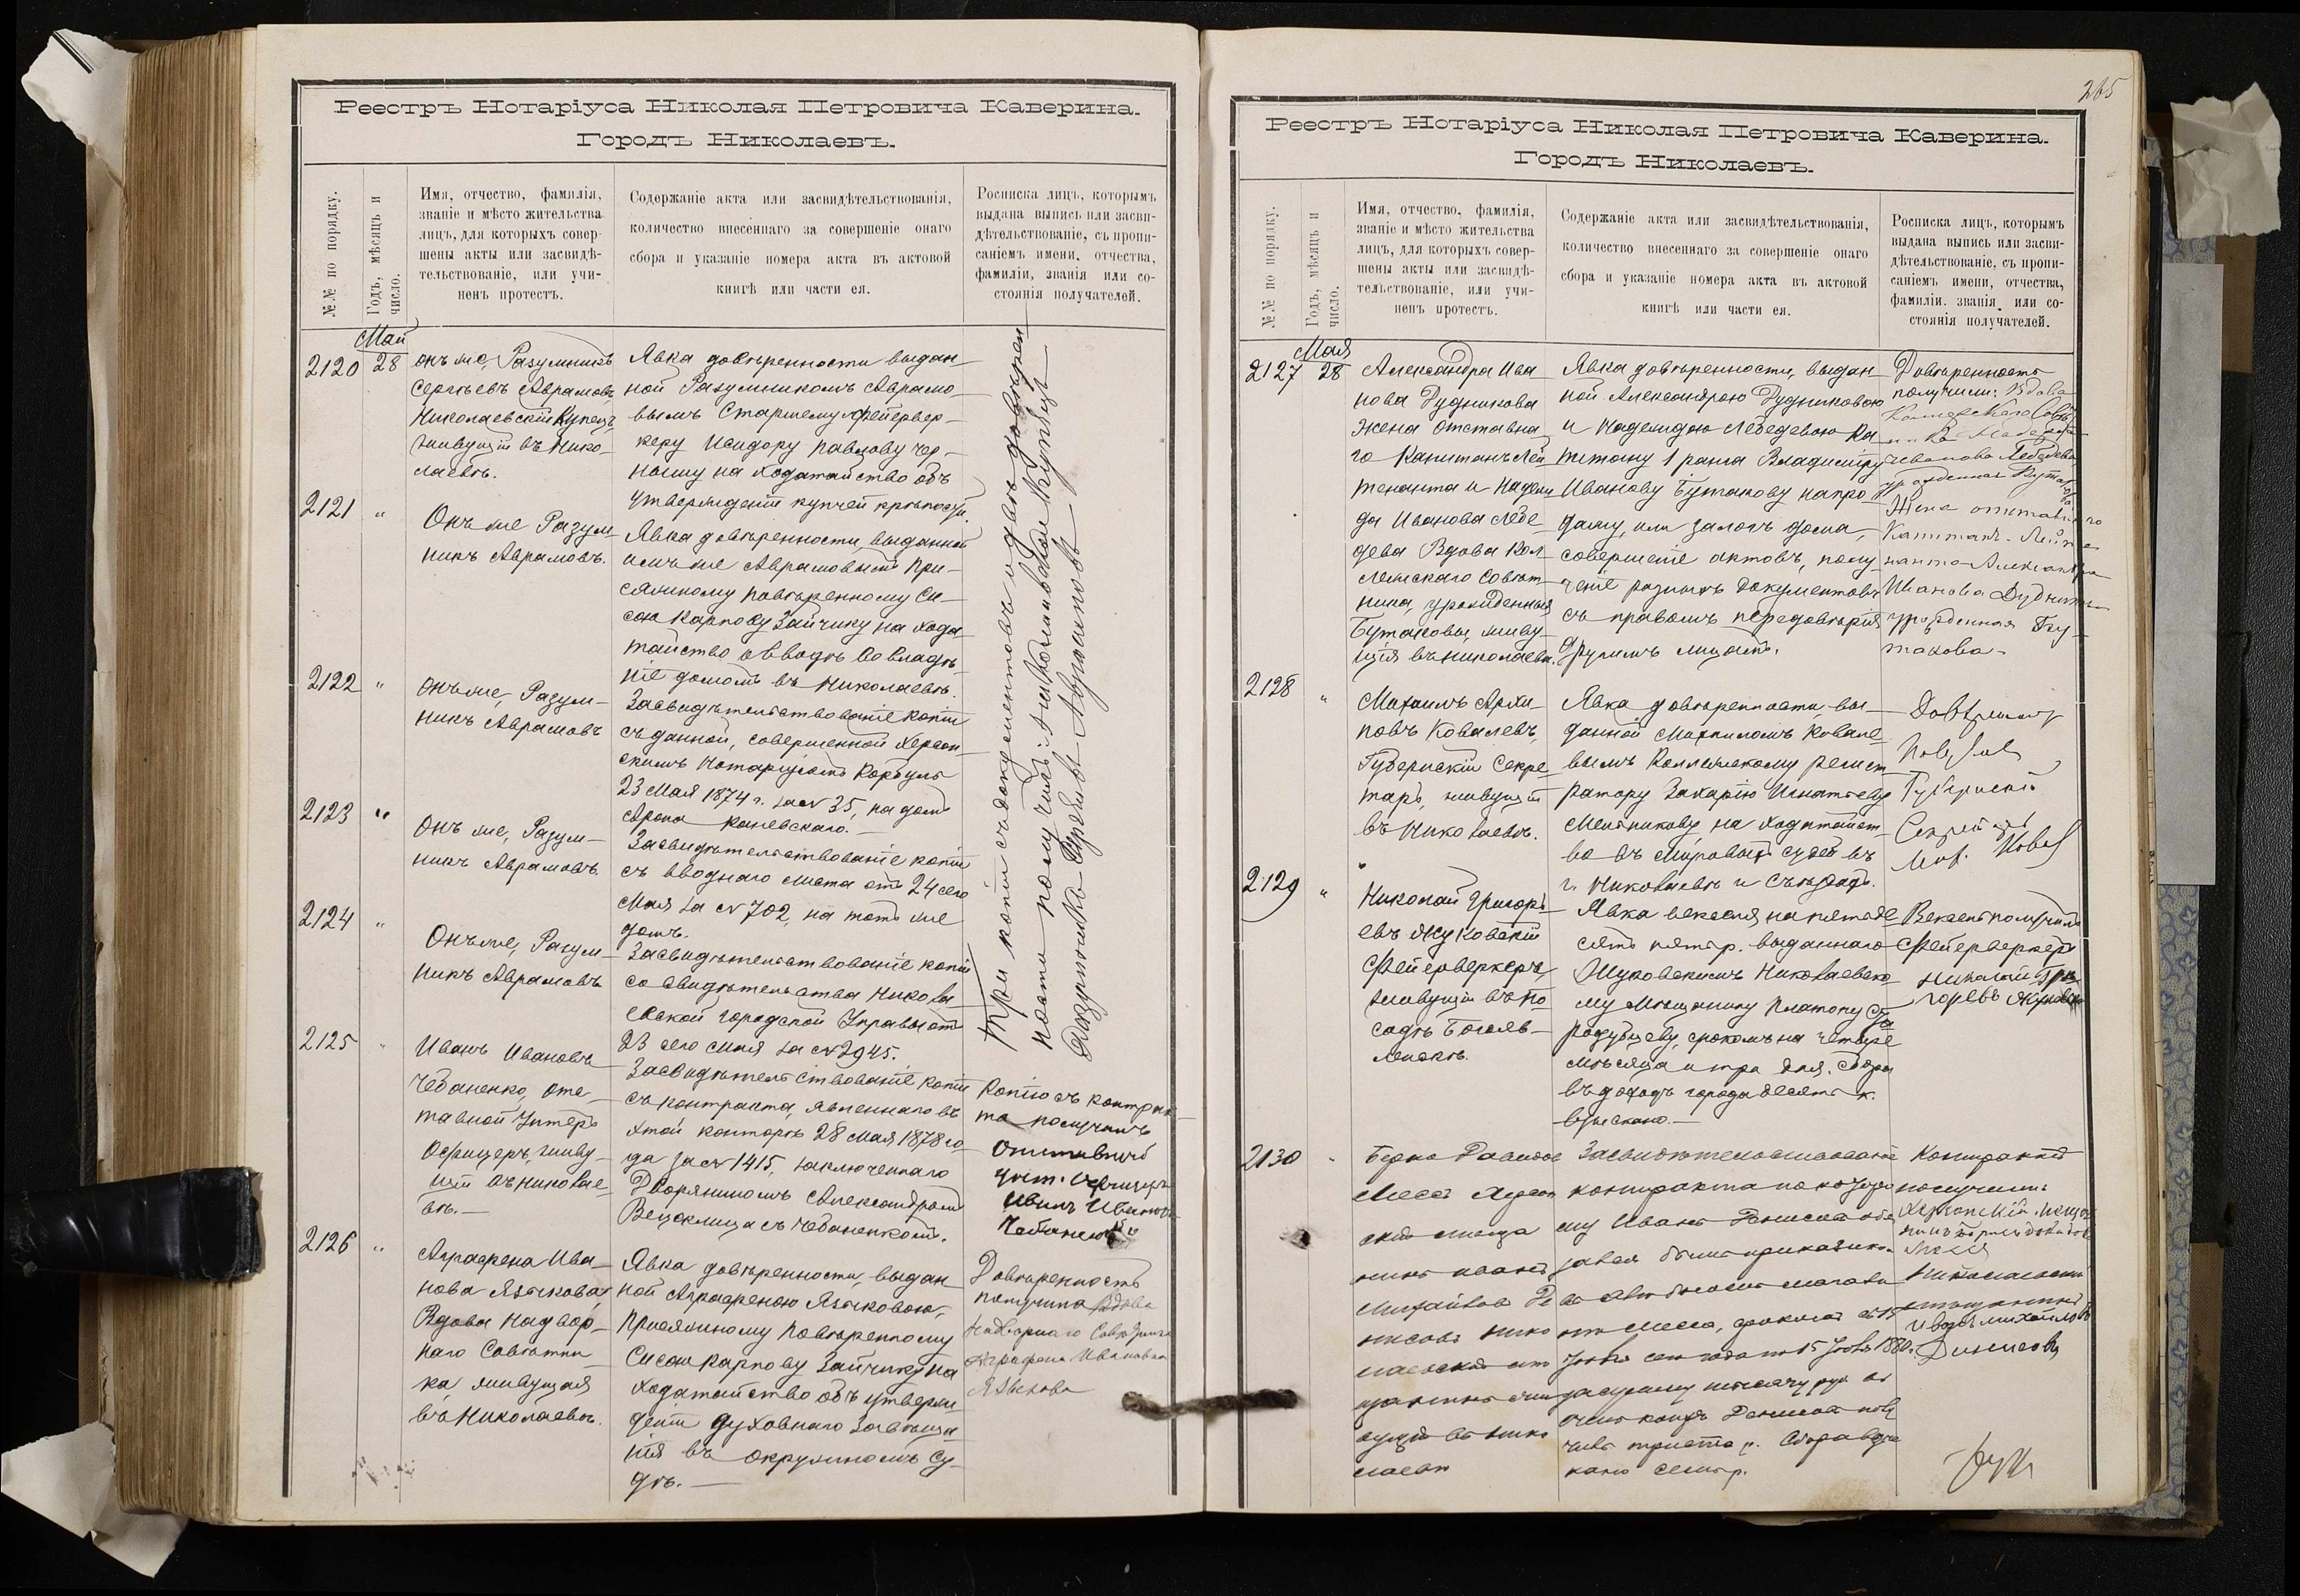 Реестръ Нотаріуса Николая Петровича Каверина.
Городъ Николаевъ.
№№ по порядку.
Годъ, мѣсяцъ и
число.
Имя, отчество, фамилія,
званіе и мѣсто жительства
лицъ, для которыхъ совер-
шены акты или засвидѣ-
тельствованіе, или учи-
ненъ протестъ.
Содержаніе акта или засвидѣтельствованія,
количество внесеннаго за совершеніе онаго
сбора и указаніе номера акта въ актовой
книгѣ или части ея.
Росписка лицъ, которымъ
выдана выпись или засви-
дѣтельствованіе, съ пропи-
саніемъ имени, отчества,
фамиліи, званія или со-
стоянія получателей.
Май
2120 28
онъ же, Разумникъ
Сергѣевъ Аврамовъ,
Николаевскій Купецъ,
живущій въ Нико-
лаевѣ.
Явка довѣренности выдан-
ной Разумникомъ Аврамо-
вымъ Старшему фейервер-
керу Исидору Павлову Чер-
ному на ходатайство объ
утвержденіи купчей крѣпости.
2121 "
Онъ же Разум-
никъ Аврамовъ.
Явка довѣренности, выданной
имъ же Аврамовымъ При-
сяжному Повѣренному Си-
сою Карпову Зайчику на хода-
тайство о вводѣ во владѣ-
ніе домомъ въ Николаевѣ.
2122 "
Онъ же, Разум-
никъ Аврамовъ
Засвидѣтельствованіе копіи
съ данной, совершенной Херсон-
скимъ Нотаріусомъ Корбулъ
23 Мая 1874 г. за № 35, на домъ
Арона Каневскаго.
2123 "
Онъ же, Разум-
никъ Аврамовъ.
Засвидѣтельствованіе копіи
съ вводнаго листа отъ 24 сего
Мая за № 702, на тотъ же
домъ.
2124 "
Онъ же, Разум-
никъ Аврамовъ
Засвидѣтельствованіе копіи
со свидѣтельства Никола-
евской Городской Управы отъ
23 сего Мая за № 2945.
Три копіи съ документовъ и двѣ довѣрен-
ности получилъ: Николаевскій Купецъ
Разумникъ Сергѣевъ Аврамовъ
2125 "
Иванъ Ивановъ
Чебаненко, отс-
тавной Унтеръ
Офицеръ, живу-
щій въ Николае-
вѣ.
Засвидѣтельствованіе копіи
съ контракта, явленнаго въ
этой конторѣ 28 Мая 1878 го-
да за № 1415, заключеннаго
Дворяниномъ Александромъ
съ Чебаненкомъ.
Копію съ контрак-
та получилъ
Отставной
унт. офицеръ
Иванъ Ивановъ
Чебаненко
2126 "
Аграфена Ива-
нова Языкова,
Вдова Надвор-
наго Совѣтни-
ка, живущая
въ Николаевѣ.
Явка довѣренности, выдан-
ной Аграфеною Языковою,
Присяжному Повѣренному
Сисою Карпову Зайчику на
ходатайство объ утверж-
деніи духовнаго завѣща-
нія въ Окружномъ Су-
дѣ.
Довѣренность
получила Вдова
Надворнаго Совѣтника
Аграфена Ивановна
Языкова
265
Реестръ Нотаріуса Николая Петровича Каверина.
Городъ Николаевъ.
№№ по порядку.
Годъ, мѣсяцъ и
число.
Имя, отчество, фамилія,
званіе и мѣсто жительства
лицъ, для которыхъ совер-
шены акты или засвидѣ-
тельствованіе, или учи-
ненъ протестъ.
Содержаніе акта или засвидѣтельствованія,
количество внесеннаго за совершеніе онаго
сбора и указаніе номера акта въ актовой
книгѣ или части ея.
Росписка лицъ, которымъ
выдана выпись или засви-
дѣтельствованіе, съ пропи-
саніемъ имени, отчества,
фамиліи. званія или со-
стоянія получателей.
Мая
2127 28
Александра Ива-
нова Дудникова
жена Отставна-
го Капитанъ Лей-
тенанта и Надеж-
да Иванова Лебе-
дева Вдова Кол-
лежскаго Совѣт-
ника, урожденныя
Бутаковы, живу-
щія въ Николаевѣ.
Явка довѣренности, выдан-
ной Александрою Дудниковою
и Надеждою Лебедевою Ка-
питану 1 ранга Владиміру
Иванову Бутакову на про-
дажу, или залогъ дома,
совершеніе актовъ, полу-
ченіе разныхъ документовъ
съ правомъ передовѣрія
другимъ лицамъ.
Довѣренность
получили: Вдова
Надежда
Иванова Лебедева,
урожденная Бутакова
Жена отставного
Капитанъ-Лейте-
нанта Александра
Иванова Дудникова
урожденная Бу-
такова
2128 "
Михаилъ Архи-
повъ Ковалевъ,
Губернскій Секре-
тарь, живущій
въ Николаевѣ.
Явка довѣренности, вы-
данной Михаиломъ Ковале-
вымъ Коллежскому регист-
ратору Захарію Игнатьеву
Мѣшникову на ходатайст-
во въ Мировыхъ судеб. въ
г. Николаевѣ и Съѣздѣ.
Губернскій
Секретарь
2129 "
Николай Григорь-
евъ Жуковскій
Фейерверкеръ,
живущій въ По-
садѣ Богояв-
ленскѣ.
Явка векселя на пятьде-
сятъ пять р. выданнаго
Жуковскимъ Николаевско-
му Мѣщанину Платону Ста-
родубцеву, срокомъ на четыре
мѣсяца и три дня. Сбора
въ доходъ города десять к.
взыскано.
Вексель получилъ
Фейерверкеръ
Николай Гри-
горьевъ Жуковскій
2130 "
Херсон-
скій мѣща-
нинъ Иванъ
Михайловъ Де-
нисовъ Нико-
лаевскій мѣ-
щанинъ жи-
вущій въ Нико-
лаевѣ
Засвидѣтельствованіе
контракта по которо-
му Иванъ Денисовъ обя-
зался быть прикащико-
срокомъ съ 15
Іюня сего года по 15 Іюня 1880 г.
за сумму тысячу руб.
Контрактъ
получили:
Херсонскій мѣща-
нинъ
Николаевскій
мѣщанинъ
Иванъ Михайловъ
Денисовъ